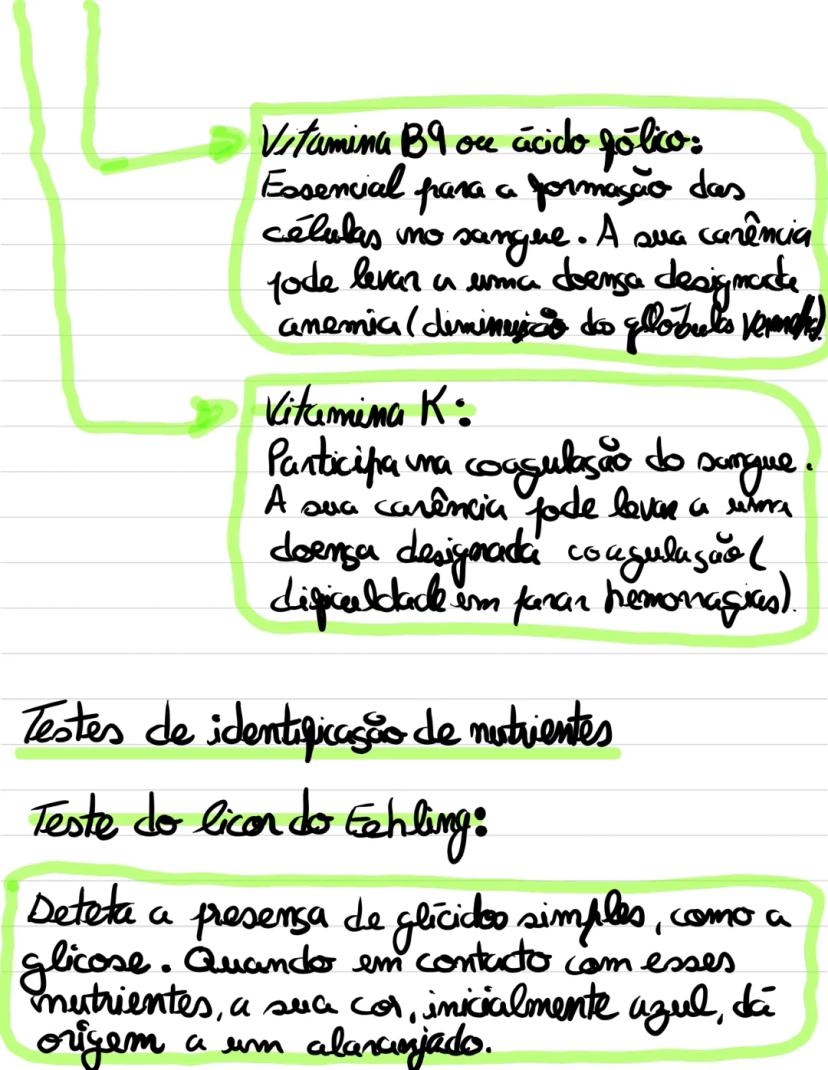 Vitamina B9 ou ácido fólico:
Essencial para a formação das
células no sangue. A sua carência
pode levar a uma doença designada
anemia (diminuição do glóbulos vermelhos)
Vitamina K:
Participa na coagulação do sangue.
A sua carência pode levar a uma
doença designada coagulação (
dificuldade em parar hemorragias).
Testes de identificação de nutrientes
Teste do licor do Fehling:
Deteta a presença de glícidos simples, como a
glicose. Quando em contacto com esses
nutrientes, a sua cor, inicialmente azul, dá
origem a um alaranjado.